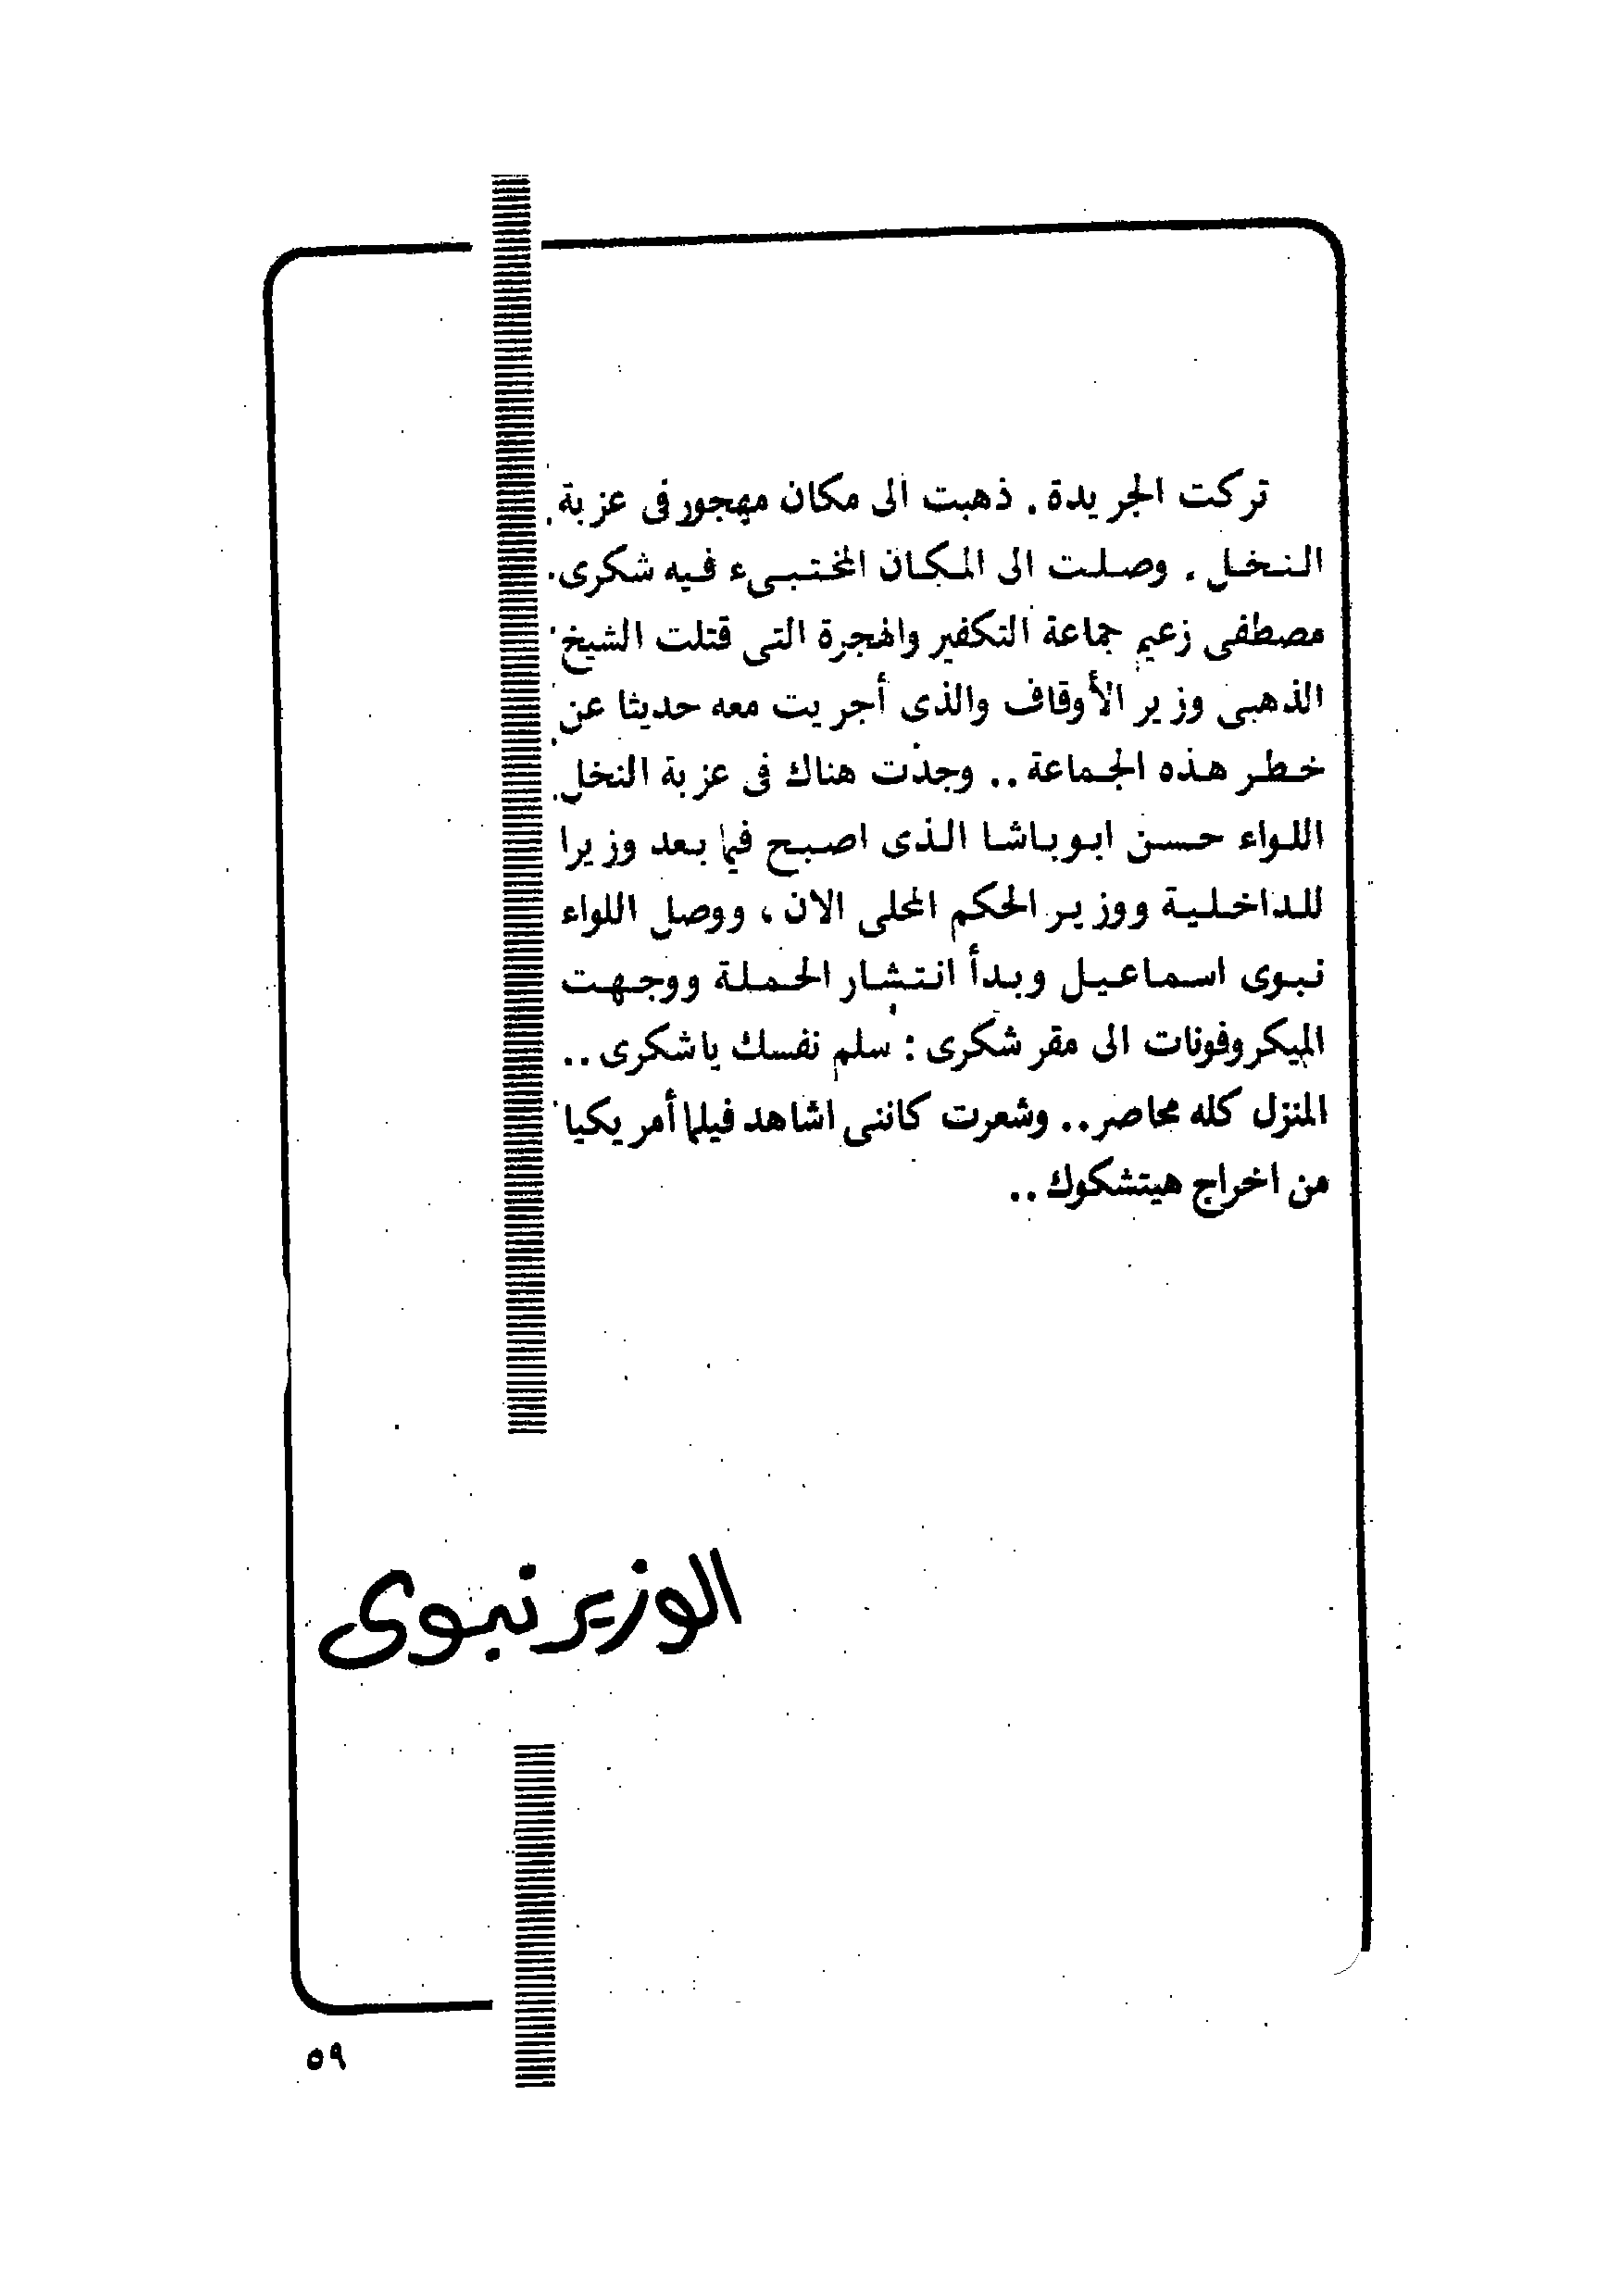 تركت الجريدة . ذهبت الى مكان مهجور فى عزبة
النخل . وصلت الى المكان المختبىء فيه شكرى
مصطفى زعيم جماعة التكفير والهجرة التى قتلت الشيخ
الذهبى وزير الأوقاف والذى أجريت معه حديثا عن
خطر هذه الجماعة .. وجدت هناك فى عزبة النخل
اللواء حسن ابوباشا الذى اصبح فيما بعد وزيرا
للداخلية ووزير الحكم المحلى الان ، ووصل اللواء
نبوى اسماعيل وبدأ انتشار الحملة ووجهت
الميكروفونات الى مقر شكرى : سلم نفسك ياشكرى ..
المنزل كله محاصر .. وشعرت كاننى اشاهد فيلما أمريكيا
من اخراج هيتشكوك ..
الوزير نبوى
٥٩